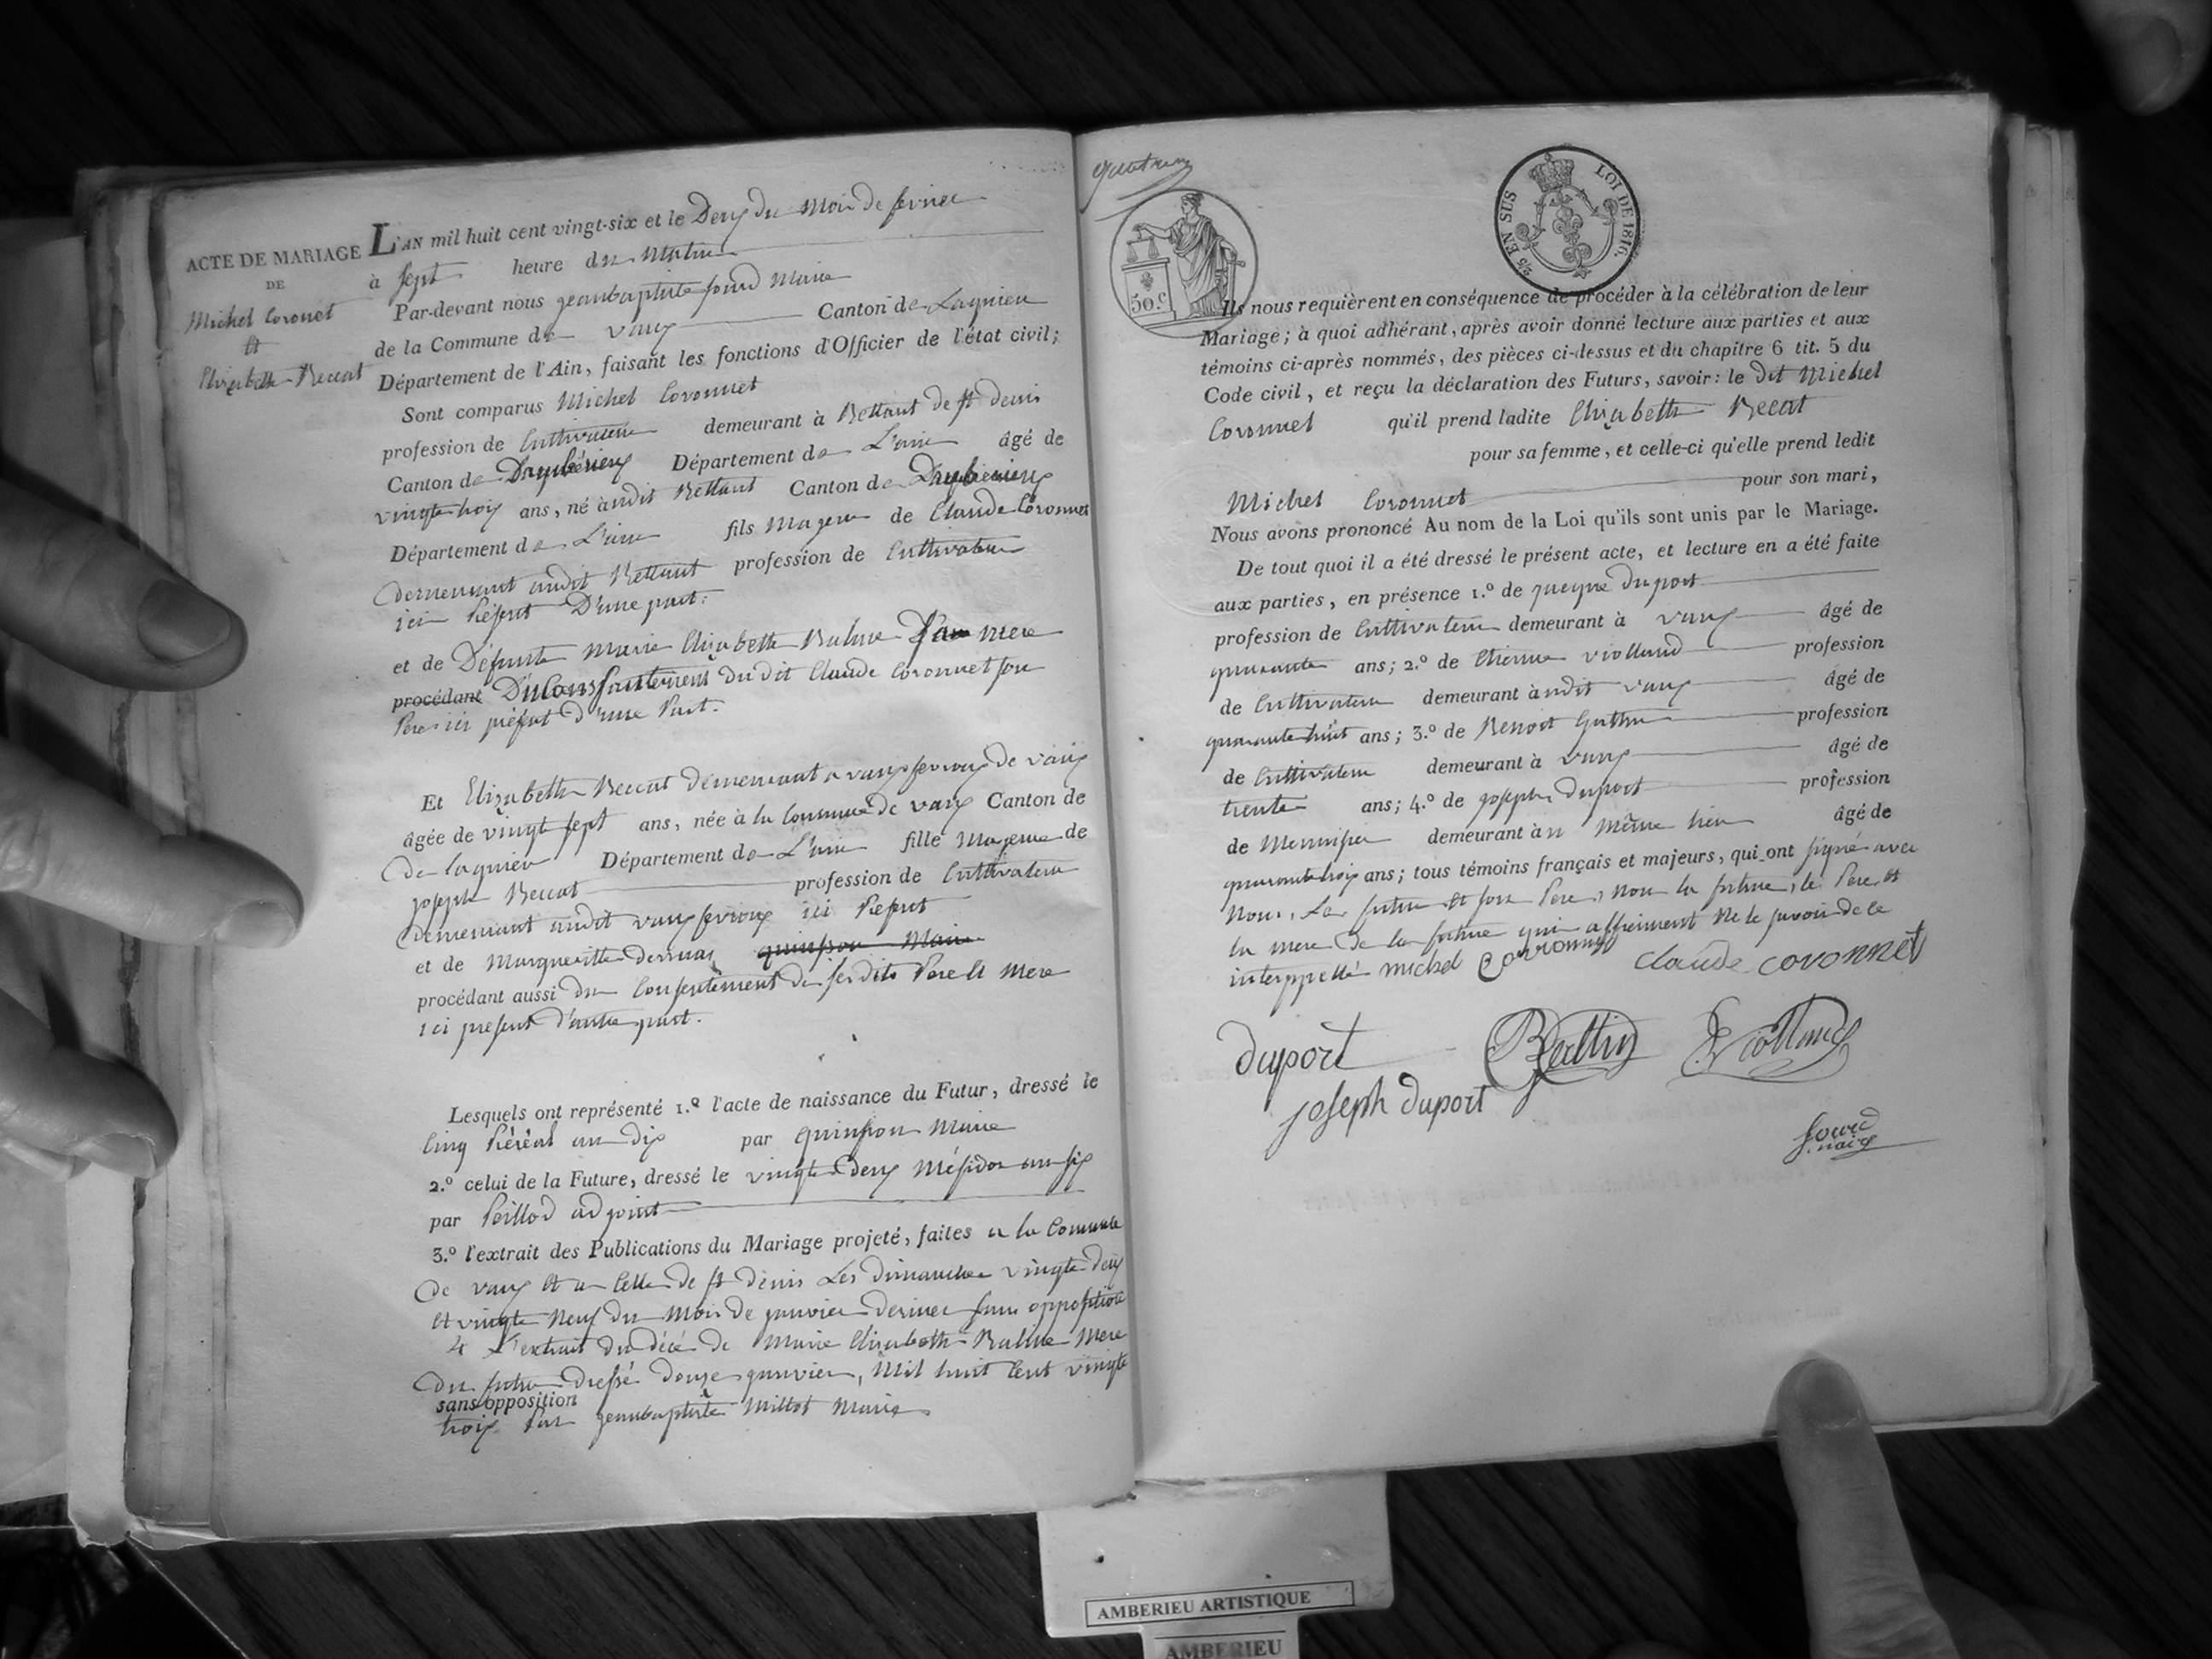 ACTE DE MARIAGE
DE
Michel Coronnet
et
Elizabeth Reccat
L'AN mil huit cent vingt-six et le Deux du Mois de fevrier
à sept heure du Matin
Par-devant nous jeanbaptiste Maire
de la Commune de vaux Canton de Lagnieu
Département de l'Ain, faisant les fonctions d'Officier de l'état civil;
Sont comparus Michel Coronnet
profession de Cultivateur demeurant à Bettant de st denis
Canton de Dambérieux Département de L'ain âgé de
vingt trois ans, né àudit Bettant Canton de Dambérieux
Département de L'ain fils Majeur de Claude Coronnet
demeurant audit Bettant profession de Cultivateur
ici Présent D'une part:
et de Défunte Marie Elizabeth Balme Mere
procédant Du Consentement du dit Claude Coronnet son
Pere ici présent d'une Part.
Et Elizabeth Reccat demeurant a vaux fevroux de vaux
âgée de vingt sept ans, née à la Commune de vaux Canton de
de lagnieu Département de L'ain fille Majeure de
joseph Reccat profession de Cultivateur
demeurant audit vaux fevroux ici Présent
et de Margueritte quinson Maire
procédant aussi du Consentement de ses dits Pere et Mere
ici présent d'autre part.
Lesquels ont représenté 1.º l'acte de naissance du Futur, dressé le
Cinq an dix par quinson Maire
2.º celui de la Future, dressé le vingt deux Mésidor an six
par Peillod adjoint
3.º l'extrait des Publications du Mariage projeté, faites a la Commune
de vaux et a Celle de st denis Les dimanches vingt deux
et vingt Neuf du Mois de janvier dernier sans opposition
4 L'extrait du décé de Marie Elizabeth Balme Mere
du futur dressé douze janvier, Mil huit Cent vingt
sans opposition
trois Par jeanbaptiste Millet Maire
50.c
2/5 EN SUS LOI DE 1816.
Ils nous requièrent en conséquence de procéder à la célébration de leur
Mariage; à quoi adhérant, après avoir donné lecture aux parties et aux
témoins ci-après nommés, des pièces ci-dessus et du chapitre 6 tit. 5 du
Code civil, et reçu la déclaration des Futurs, savoir: le dit Michel
Coronnet qu'il prend ladite Elizabeth Reccat
pour sa femme, et celle-ci qu'elle prend ledit
Michel Coronnet pour son mari,
Nous avons prononcé Au nom de la Loi qu'ils sont unis par le Mariage.
De tout quoi il a été dressé le présent acte, et lecture en a été faite
aux parties, en présence 1.º de jacque duport
profession de Cultivateur demeurant à vaux âgé de
quarante ans; 2.º de Etienne violland profession
de Cultivateur demeurant àudit vaux âgé de
quarante huit ans; 3.º de Benoit profession
de Cultivateur demeurant à vaux âgé de
trente ans; 4.º de joseph duport profession
de Menuisier demeurant àu même lieu âgé de
quarante trois ans; tous témoins français et majeurs, qui ont signé avec
Nous, Le futur et son Pere, Non la future, le Pere et
la mere de la future qui affirment Ne le savoir de ce
interppellé michel Coronnet claude coronnet
duport Violland
joseph duport
maire
AMBERIEU ARTISTIQUE
AMBERIEU